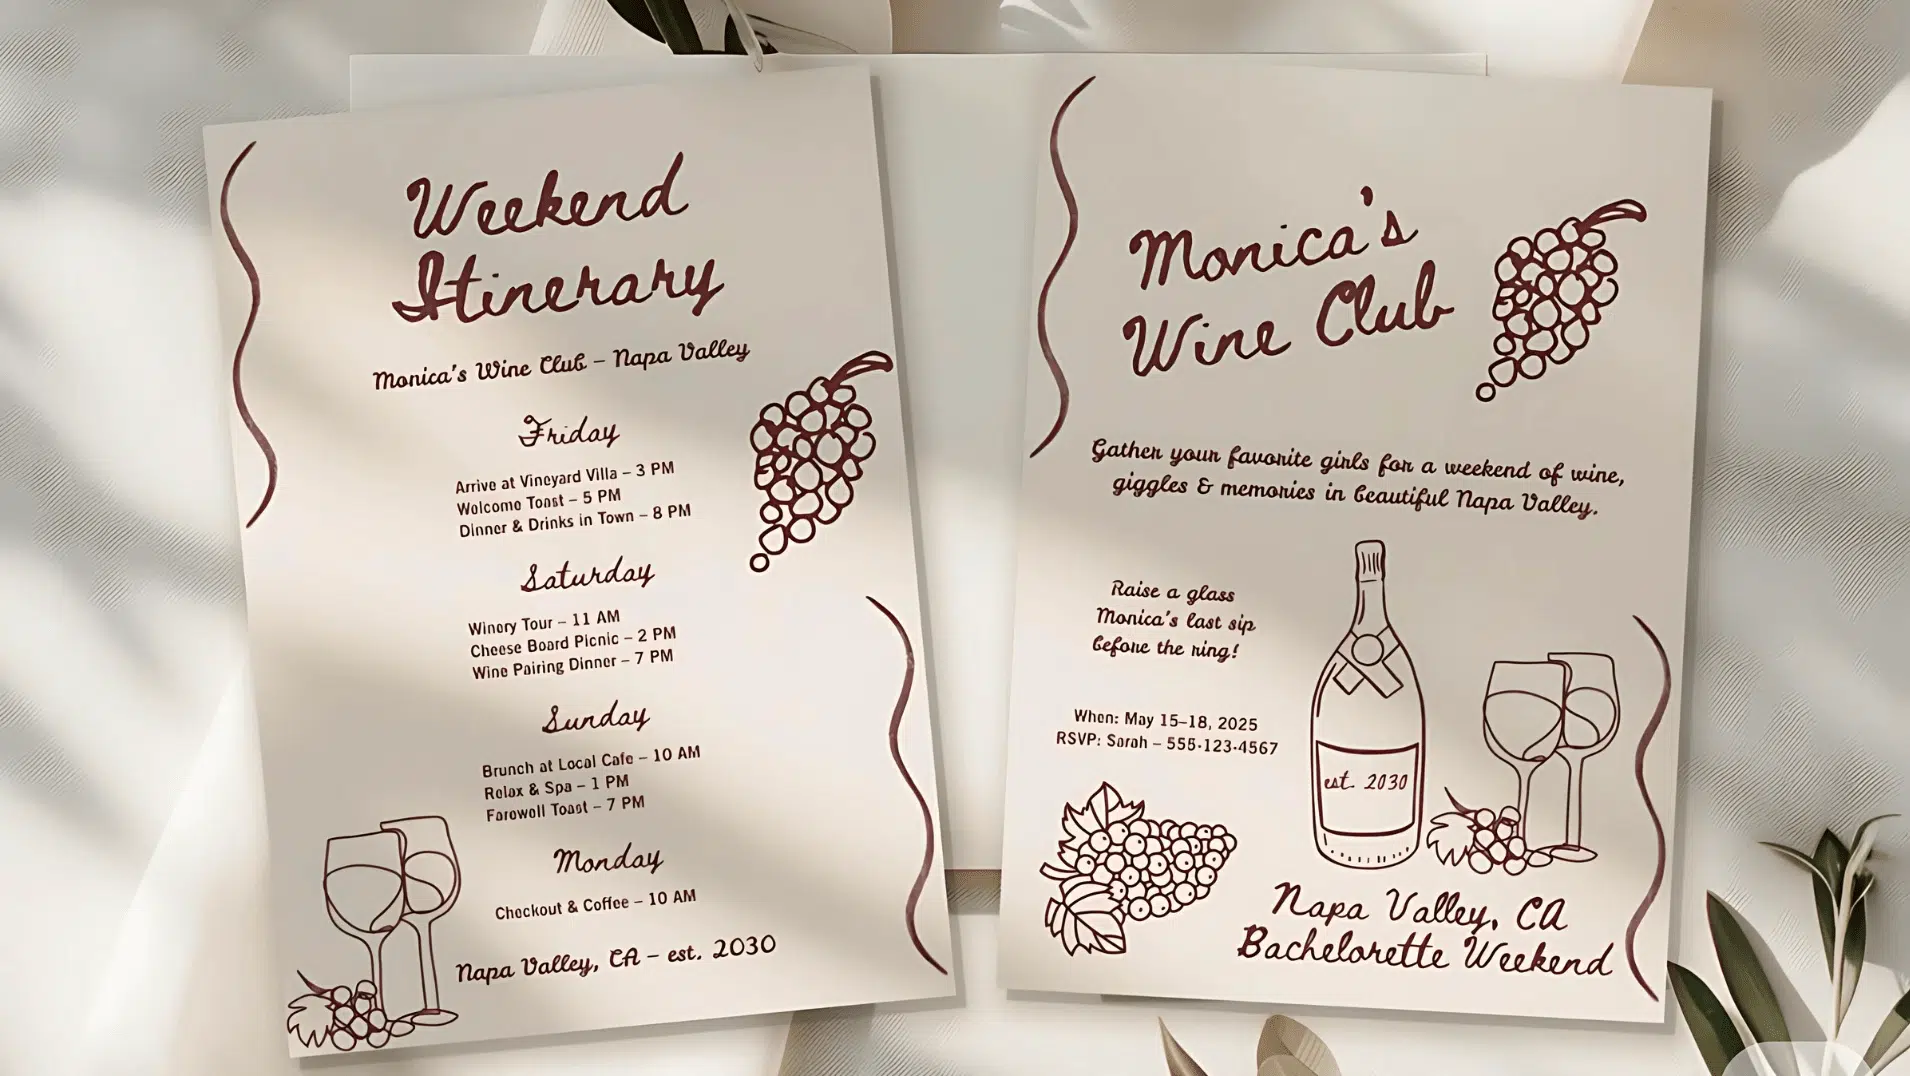 Weekend
Itinerary
Monica's Wine Club – Napa Valley
Friday
Arrive at Vineyard Villa – 3 PM
Welcome Toast – 5 PM
Dinner & Drinks in Town – 8 PM
Saturday
Winery Tour – 11 AM
Cheese Board Picnic – 2 PM
Wine Pairing Dinner – 7 PM
Sunday
Brunch at Local Cafe – 10 AM
Relax & Spa – 1 PM
Farewell Toast – 7 PM
Monday
Checkout & Coffee – 10 AM
Napa Valley, CA – est. 2030
Monica's
Wine Club
Gather your favorite girls for a weekend of wine,
giggles & memories in beautiful Napa Valley.
Raise a glass
Monica's last sip
before the ring!
When: May 15–18, 2025
RSVP: Sarah – 555-123-4567
est. 2030
Napa Valley, CA
Bachelorette Weekend